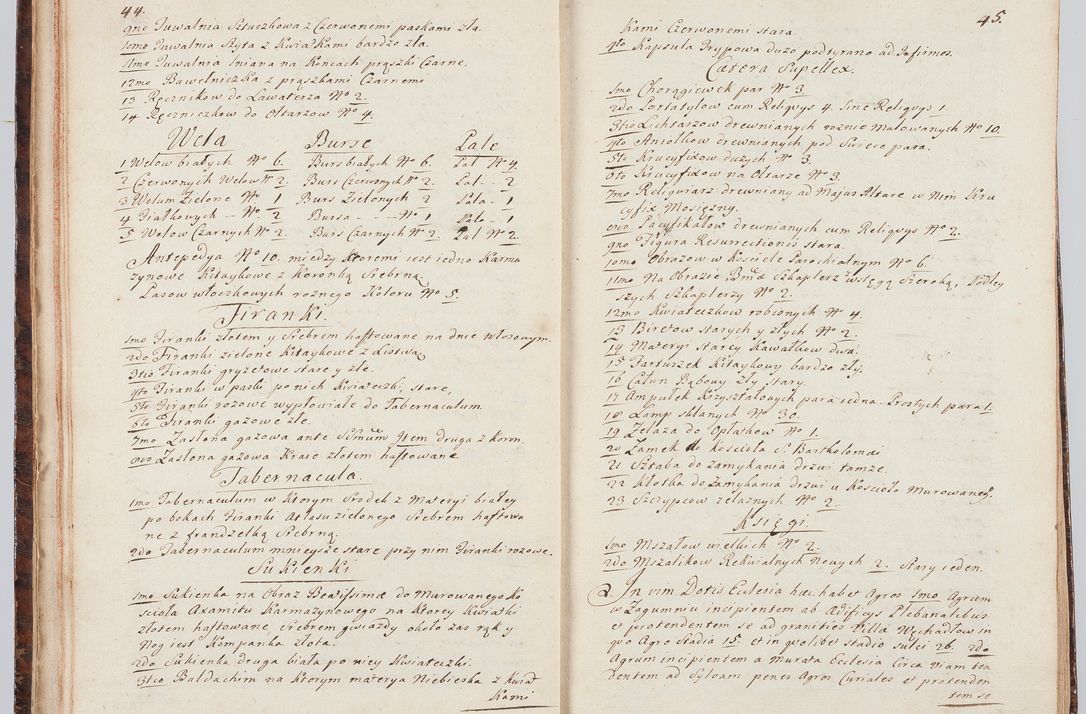 44.
9no Tuwalnia Sztuczkowa z Czerwonemi paskami zła.
10mo Tuwalnia Szyta z Kwiatkami bardzo zła.
11mo Tuwalnia lniana na Koncach prązki Czarne.
12mo Bawelniczka z prązkami Czarnemi
13 Ręcznikow do Lawaterza No 2.
14 Ręczniczkow do Oltarzow No 4.
Wela Burse Pale
1 Welow białych No 6. Burs białych No 6. Pal No 4
2 Czerwonych Welow No 2. Burs Czerwonych No 2. Pal - - 2
3 Welum Zielone No 1 Burs Zielonych 2 Pala - 1
4 Fiałkowych - - No 2 Bursa - - - No 1 Pala - 1
5 Welow Czarnych No 2. Burs Czarnych No 2. Pal No 2.
Antepedya No 10. miedzy Ktoremi iest iedno Karma
zynowe Kitaykowe z Koronką Srebrną.
Pasow włoczkowych roznego Koloru No 5.
Firanki.
1mo Firanki złotem y Srebrem hafftowane na dnie włosowym.
2do Firanki zielone Kitaykowe z Listwą
3tio Firanki gryzetowe stare y złe.
4to Firanki w paski po nich Kwiateczki, stare,
5to Firanki rozowe wypłowiałe do Tabernaculum.
6to Firanki gazowe złe.
7mo Zasłona gazowa ante Scmum Item druga z Koron.
8vo Zasłona gazowa Kraie złotem hafftowane
Tabernacula.
1mo Tabernaculum w Ktorym Srodek z Materyi białey
po bokach Firanki Atłasu zielonego Srebrem hafftowa
ne z frandzelką Srebrną.
2do Tabernaculum mnieysze stare przy nim Firanki rozowe.
Sukienki
1mo Sukienka na Obraz Beatissimæ do Murowanego Ko
scioła Axamitu Karmazynowego na Ktorey Kwiatki
złotem hafftowane, srebrem gwiazdy około zas rąk y
Nog iest Kompanka złota.
2do Sukienka druga biała po niey Kwiateczki.
3tio Baldachim na Ktorym materya Niebieska z Kwiat
Kami
45.
Kami Czerwonemi stara.
4to Kapsula Grypowa duzo podstyrana ad Infirmos.
Cætera Supellex.
1mo Chorągiewek par No 3.
2do Portatylow cum Reliquys 4. Sine Reliquys 1.
3tio Lichtarzow drewnianych roznie Malowanych No 10.
4to Aniołkow drewnianych pod Swiece para.
5to Krucyfixow duzych No 3.
6to Krucyfixow na Oltarze No 3.
7mo Religwiarz drewniany ad Majus Altare w Nim Kru
cyfix Mosięzny.
8vo Pacyfikałow drewnianych cum Reliquys No 2.
9no Figura Resurrectionis stara.
10mo Obrazow w Kosciele Parochialnym No 6.
11mo Na Obrazie Bmæ Szkaplerz wstęgą szeroką, Podley
szych Szkaplerzy No 2.
12mo Kwiateczkow robionych No 4.
13 Biretow starych y złych No 2.
14 Materyi starey Kawałkow dwa.
15 Fartuszek Kitaykowy bardzo zły.
16 Całun Rąbowy zły stary.
17 Ampułek Krzyształowych para iedna. Prostych para 1.
18 Lamp sklanych No 30.
19 Zelaza do Opłatkow No 1.
20 Zamek do Koscioła S. Bartholomæi
21 Sztaba do zamykania drzwi tamze.
22 Klotka do Zamykania drzwi u Koscioła Murowanego.
23 Szczypcow zelaznych No 2.
Księgi.
1mo Mszałow wielkich No 2.
2do Mszalikow Rekwialnych Nowych 2. Stary ieden.
In vim Dotis Ecclesia hæc habet Agros 1mo Agrum
w Zagumniu incipientem ab Ædificys Plebanalibus
et protendentem se ad granities Villæ Węchadłow in
quo Agro Stadia 15. et in quolibet stadio sulci 26. 2do
Agrum incipientem a Murata Ecclesia Circa viam ten
dentem ad Sylvam penes Agros Curiales et protenden
tem se